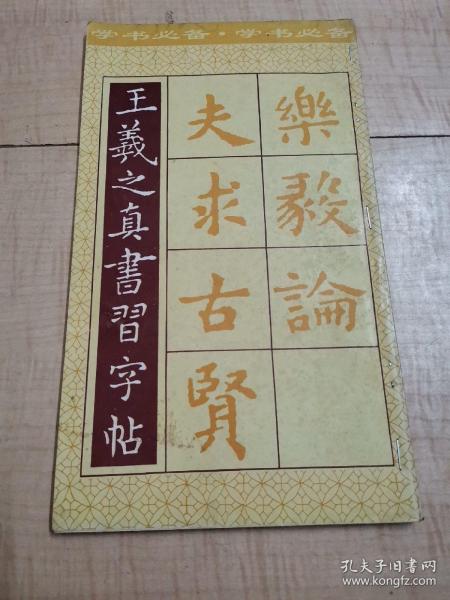 学书必备·学书必备
樂毅論
夫求古賢
王羲之真書習字帖
孔夫子旧书网
www.kongfz.com